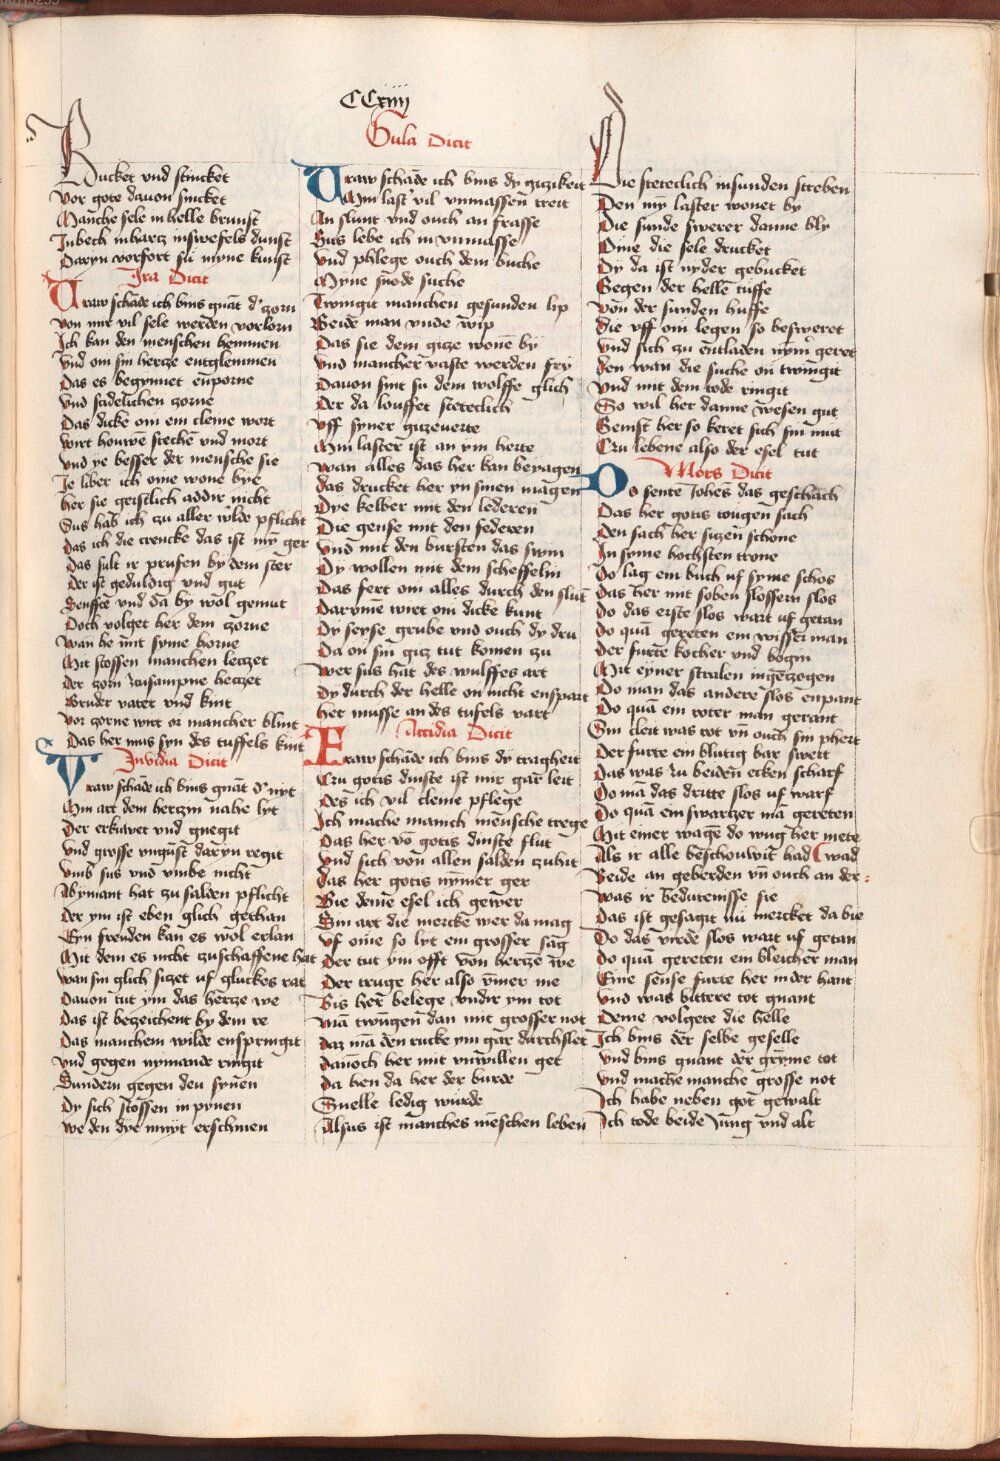 CCxiiij
Rucket vnd stincket
Vor gote dauon sincket
Manche sele in helle brunst
In bech in harcz in swefels dunst
Daryn vorfort sü myne kunst
Ira Dicit
Vraw schāde ich bins gnāt d' zorn
Von mir vil sele werden vorlorn
Ich kan den menschen hemmen
Vnd om sin hercze entglemmen
Das es begynnet enporne
Vnd schēdelichen zorne
Das dicke om ein cleine wort
Wirt houwe stechē vnd mort
Vnd ye besser der mensche sie
Je liber ich ome wone bye
her sie geistlich addir nicht
Sus hab ich zu aller wilde pflicht
Das ich die crencke das ist myn ger
Das sult ir prufen by dem ster
Der ist geduldig vnd gut
Senffte vnd da by wol gemut
Doch volget her dem zorne
Wan he mit syme horne
Mit stossen manchen leczet
Der zorn zusampne heczet
Bruder vater vnd kint
Vor zorne wirt or mancher blint
Das her mus syn des tuffels kint
Invidia Dicit
Vraw schāde ich bins gnāt d' nyt
Min art dem herczin nahe lyt
Der erkuwet vnd gnegit
Vnd grosse vngunst daryn regit
Vmb sus vnd vmbe nicht
Nymant hat zu salden pflicht
Der ym ist eben glich gethan
Eyn freuden kan es wol erlan
Mit dem es nicht zuschaffene hat
Wan sin glich siczet uf gluckes rat
Dauon tut ym das hercze we
Das ist beczeichent by dem re
Das manchem wilde enspringit
Vnd gegen nymande ringit
Sundern gegen den synen
Dy sich stossen in pynen
We den dye in nyt erschinen
Gula Dicit
Vraw schāde ich bins dy giczikeit
Min last' vil vnmassen treit
An slunt vnd ouch an frasse
Sus lebe ich in vnmasse
Vnd phlege ouch dem buche
Myne snode suche
Twingit manchen gesunden lip
Beide man vnde wip
Das sie dem gicze wone by
Vnd mancher vaste werden fry
Dauon sint su dem wolffe glich
Der da louffet steteclich
Vff syner giczeuerte
Min laster ist an ym herte
Wan alles das her kan beyagen
Das drucket her yn sinen magen
Dye kelber mit den lederen
Die gense mit den federen
Vnd mit den bursten das swin
Dy wollen mit dem scheffelin
Das fert om alles durch den slut
Daryme wirt om dicke kunt
Dy seyse grube vnd ouch dy dru
Da on sin gicz tut komen zu
Wer sus hat des wulffes art
Dy durch der helle on nicht enspart
her musse an des tufels vart
Accidia Dicit
Fraw schāde ich bins dy tragheit
Czu gotis dinste ist mir gar leit
Des ich vil cleine pflege
Ich mache manch mensche trege
Das her vō gotis dinste flut
Vnd sich von allen salden zuhit
Das her gotis nymer ger
Bie deme esel ich gewer
Sin art die mercke wer da mag
Vf ome so lyt ein grosser sag
Der tut ym offt von hercze we
Der truge her also ymer me
Bis her belege vndir ym tot
Mā twungen dan mit grosser not
Daz mā den rucke ym gar durchslet
Dannoch her mit vnwillen get
Da hen da her der burde
Snelle ledig wurde
Alsus ist manches menschen leben
Die steteclich in sunden streben
Den myn laster wonet by
Die sunde swerer danne bly
Dyne die sele drucket
Dy da ist nyder gebucket
Gegen der hellen tuffe
Von der sunden huffe
Die vff om legen so besweret
Vnd sich zu entladen nym' geret
Den wan die suche on twingit
Vnd mit dem tode ringit
So wil her danne wesen gut
Genist her so keret sich sin mut
Czu lebene also der esel tut
Mors Dicit
Do sente Johēs das geschach
Das her gotis tougen sach
Den sach her siczen schone
In syme hochsten trone
Do lag ein buch uf syme schos
Das her mit soben slossern slos
Do das erste slos wart uf getan
Do quā gereten ein wisser man
Der furte kocher vnd bogin
Mit eyner stralen ingeczogen
Do man das andere slos enpant
Do quā ein roter man gerant
Sin cleit was rot vn ouch sin phert
Der furte ein blutig bar swert
Das was zu beiden ecken scharf
Do mā das dritte slos uf warf
Do quā ein swarczer mā gereten
Mit einer wagē do wug her mete
Als ir alle beschouwit had wad
Beide an geberden vn ouch an der
Was ir bedutenisse sie
Das ist gesagit nu mercket da bie
Do das virde slos wart uf getan
Do quā gereten ein bleicher man
Eine sense furte her in der hant
Vnd was bittere tot gnant
Deme volgete die helle
Ich bins der selbe geselle
Vnd bins gnant der grȳme tot
Vnd mache manche grosse not
Ich habe neben got gewalt
Ich tode beide jung vnd alt